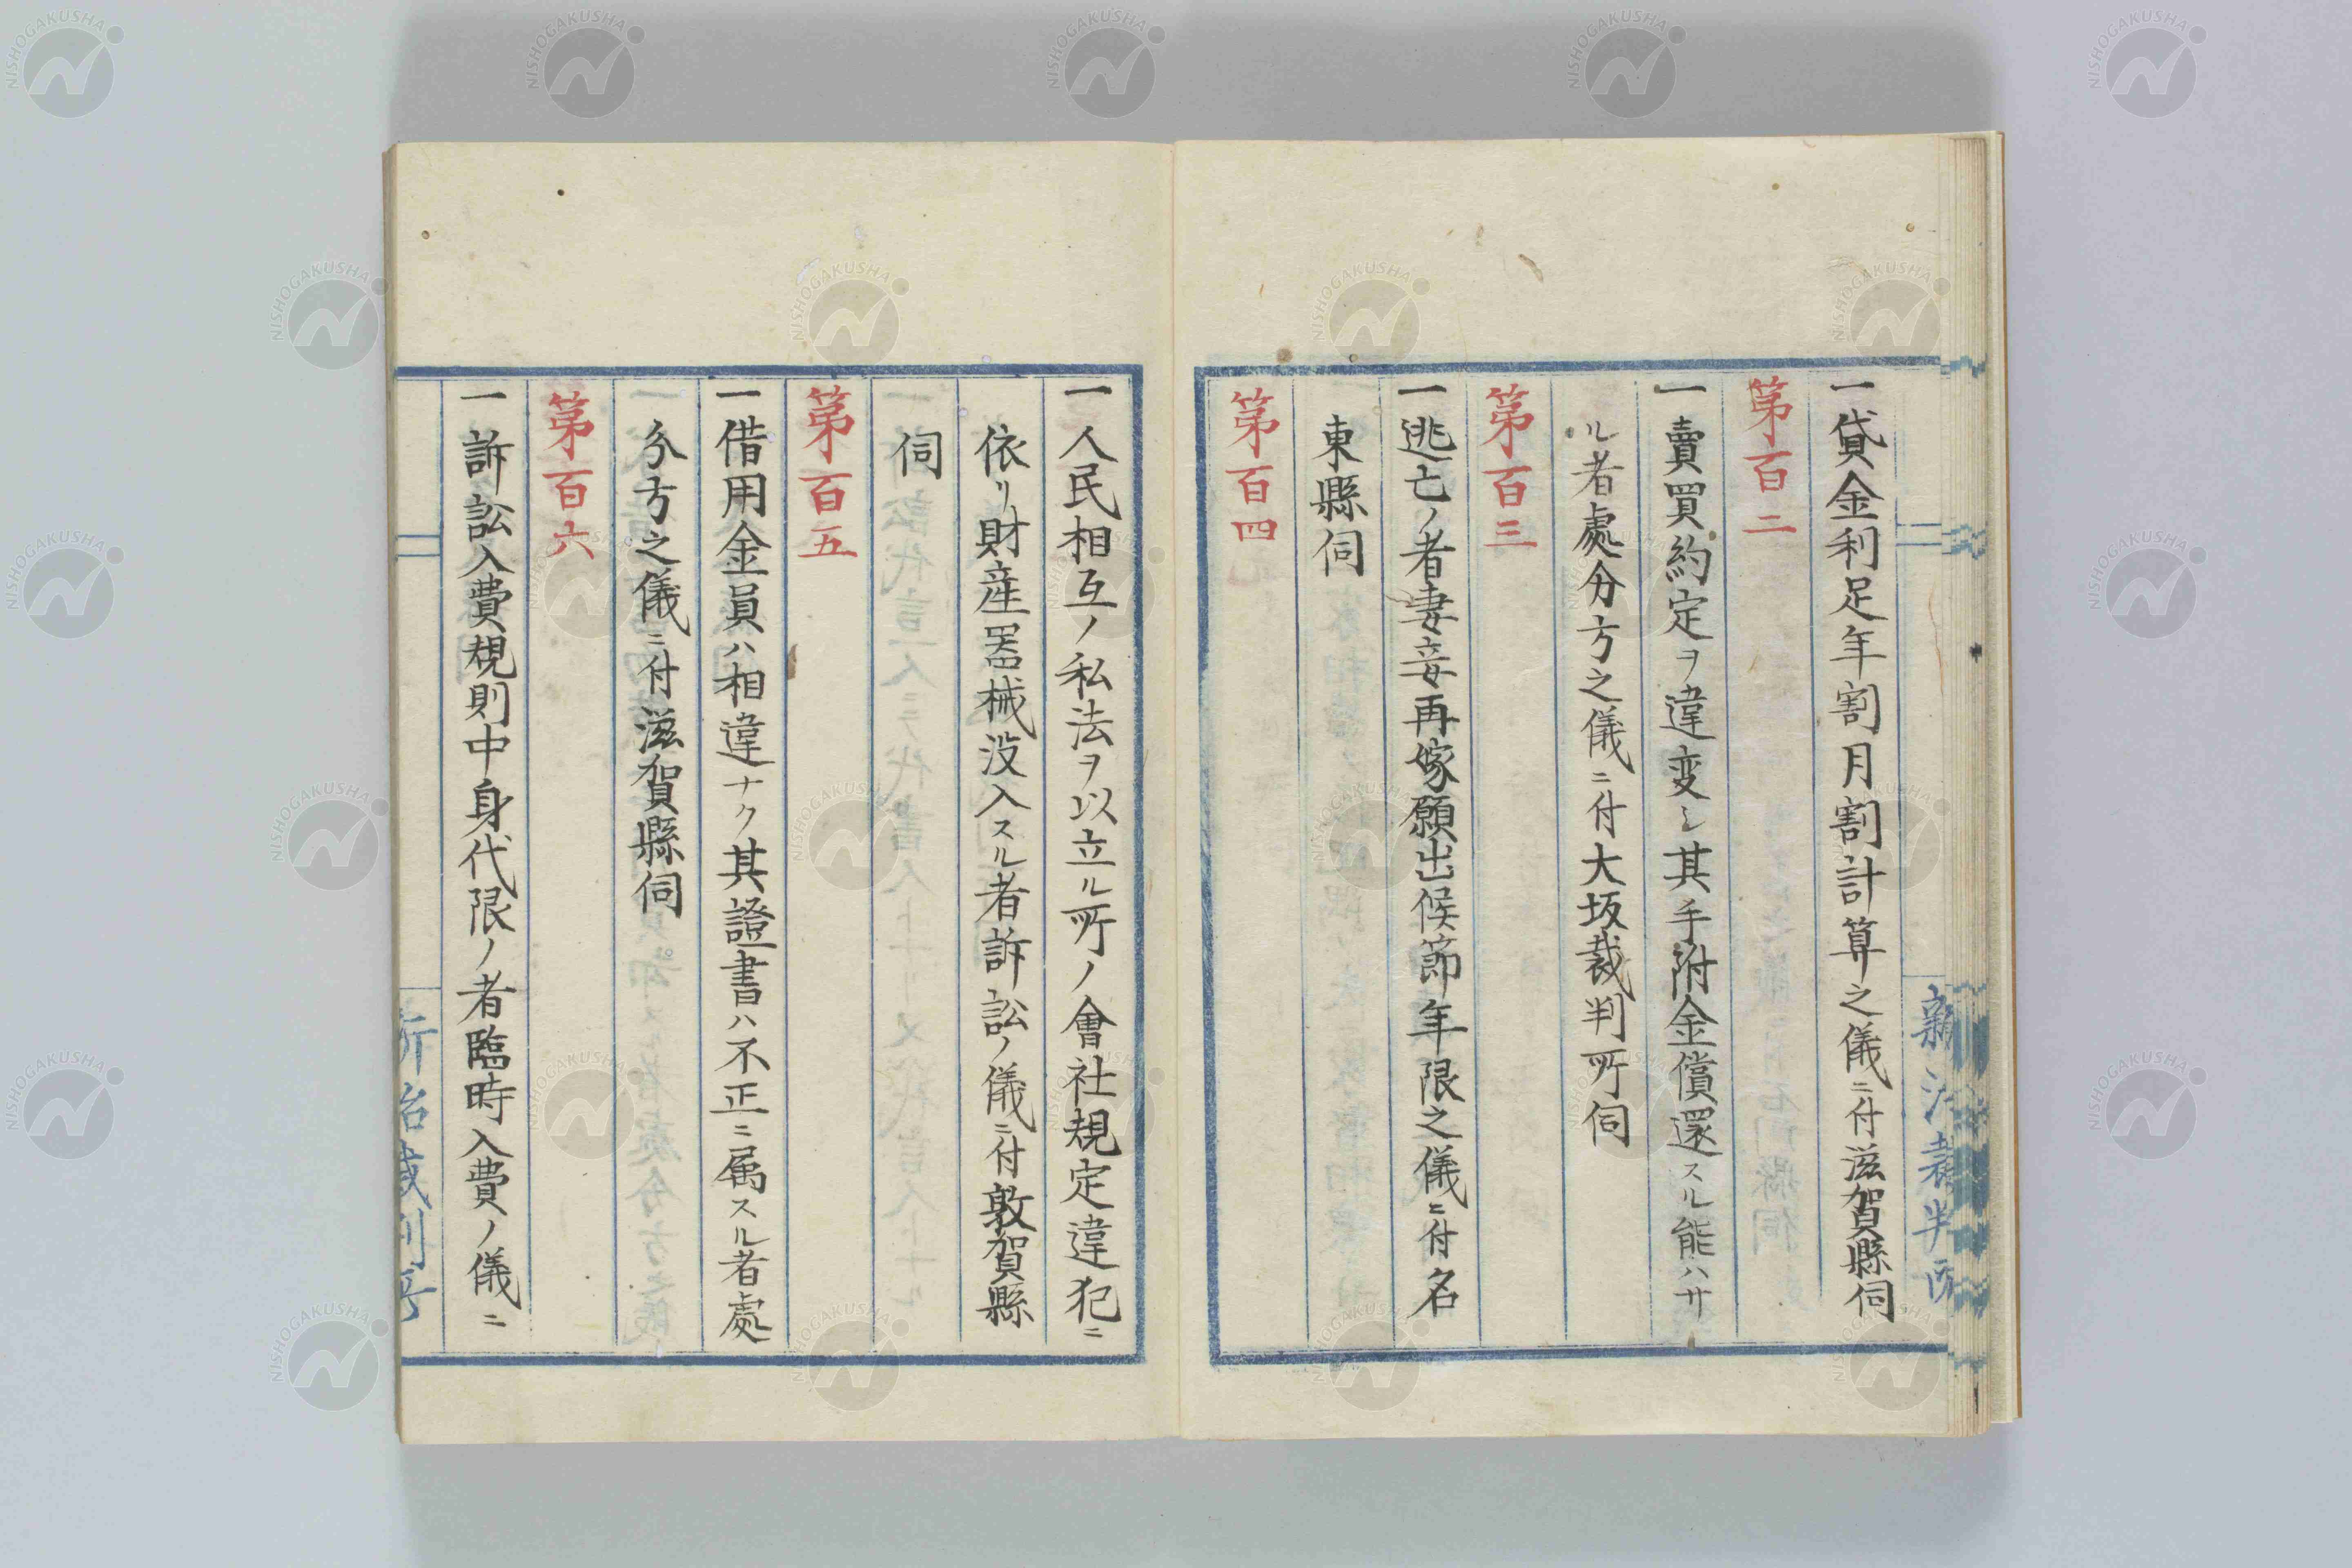 一貸金利足年割月割計算之儀ニ付滋賀縣伺
第百二
一賣買約定ヲ違変シ其手附金償還スル能ハサ
ル者處分方之儀ニ付大坂裁判所伺
第百三
一逃亡ノ者妻妾再嫁願出候節年限之儀ニ付名
東縣伺
第百四
一人民相互ノ私法ヲ以立ル所ノ會社規定違犯ニ
依リ財産噐械没入スル者訴訟ノ儀ニ付敦賀縣
伺
第百五
一借用金員ハ相違ナク其證書ハ不正ニ属スル者處
分方之儀ニ付滋賀縣伺
第百六
一訴訟入費規則中身代限ノ者臨時入費ノ儀ニ
NISHOGAKUSHA